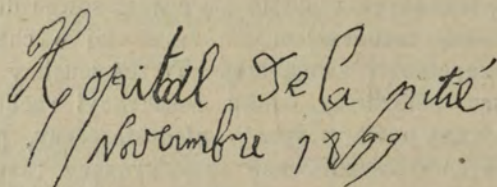 Hopital De la pitié
Novembre 1899.